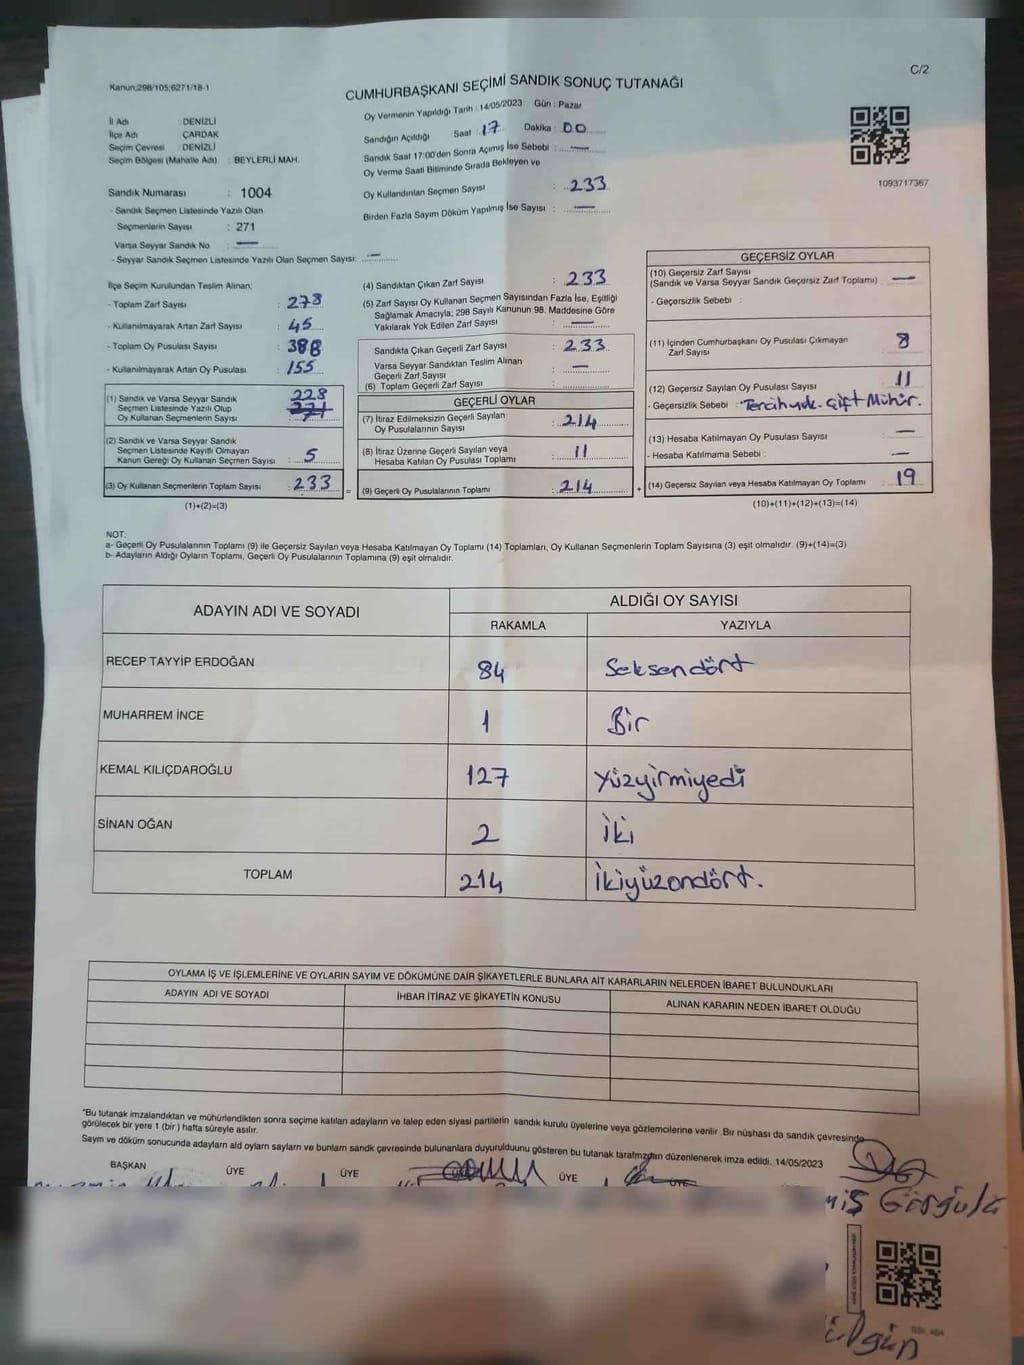 C/2
Kanun;298/105;6271/18-1
CUMHURBAŞKANI SEÇİMİ SANDIK SONUÇ TUTANAĞI
İl Adı : DENİZLİ
İlçe Adı : ÇARDAK
Seçim Çevresi : DENİZLİ
Seçim Bölgesi (Mahalle Adı) : BEYLERLİ MAH.
Sandık Numarası : 1004
- Sandık Seçmen Listesinde Yazılı Olan
Seçmenlerin Sayısı : 271
Varsa Seyyar Sandık No : —
- Seyyar Sandık Seçmen Listesinde Yazılı Olan Seçmen Sayısı: —
Oy Vermenin Yapıldığı Tarih : 14/05/2023 Gün : Pazar
Sandığın Açıldığı Saat : 17 Dakika : 00
Sandık Saat 17:00'den Sonra Açımış İse Sebebi : —
Oy Verme Saati Bitiminde Sırada Bekleyen ve
Oy Kullandırılan Seçmen Sayısı : 233
Birden Fazla Sayım Döküm Yapılmış İse Sayısı : —
1093717367
İlçe Seçim Kurulundan Teslim Alınan;
- Toplam Zarf Sayısı : 278
- Kullanılmayarak Artan Zarf Sayısı : 45
- Toplam Oy Pusulası Sayısı : 388
- Kullanılmayarak Artan Oy Pusulası : 155
(1) Sandık ve Varsa Seyyar Sandık
Seçmen Listesinde Yazılı Olup
Oy Kullanan Seçmenlerin Sayısı : 228
(2) Sandık ve Varsa Seyyar Sandık
Seçmen Listesinde Kayıtlı Olmayan
Kanun Gereği Oy Kullanan Seçmen Sayısı : 5
(3) Oy Kullanan Seçmenlerin Toplam Sayısı : 233
(1)+(2)=(3)
(4) Sandıktan Çıkan Zarf Sayısı : 233
(5) Zarf Sayısı Oy Kullanan Seçmen Sayısından Fazla İse, Eşitliği
Sağlamak Amacıyla; 298 Sayılı Kanunun 98. Maddesine Göre
Yakılarak Yok Edilen Zarf Sayısı : —
Sandıkta Çıkan Geçerli Zarf Sayısı : 233
Varsa Seyyar Sandıktan Teslim Alınan
Geçerli Zarf Sayısı : —
(6) Toplam Geçerli Zarf Sayısı :
GEÇERLİ OYLAR
(7) İtiraz Edilmeksizin Geçerli Sayılan
Oy Pusulalarının Sayısı : 214
(8) İtiraz Üzerine Geçerli Sayılan veya
Hesaba Katılan Oy Pusulası Toplamı : 11
= (9) Geçerli Oy Pusulalarının Toplamı : 214 +
GEÇERSİZ OYLAR
(10) Geçersiz Zarf Sayısı
(Sandık ve Varsa Seyyar Sandık Geçersiz Zarf Toplamı) : —
- Geçersizlik Sebebi :
(11) İçinden Cumhurbaşkanı Oy Pusulası Çıkmayan
Zarf Sayısı : 8
(12) Geçersiz Sayılan Oy Pusulası Sayısı : 11
- Geçersizlik Sebebi : Tercih yok. Çift Mühür.
(13) Hesaba Katılmayan Oy Pusulası Sayısı : —
- Hesaba Katılmama Sebebi : —
(14) Geçersiz Sayılan veya Hesaba Katılmayan Oy Toplamı : 19
(10)+(11)+(12)+(13)=(14)
NOT:
a- Geçerli Oy Pusulalarının Toplamı (9) ile Geçersiz Sayılan veya Hesaba Katılmayan Oy Toplamı (14) Toplamları, Oy Kullanan Seçmenlerin Toplam Sayısına (3) eşit olmalıdır. (9)+(14)=(3)
b- Adayların Aldığı Oyların Toplamı, Geçerli Oy Pusulalarının Toplamına (9) eşit olmalıdır.
ADAYIN ADI VE SOYADI ALDIĞI OY SAYISI
RAKAMLA YAZIYLA
RECEP TAYYİP ERDOĞAN 84 Seksendört
MUHARREM İNCE 1 Bir
KEMAL KILIÇDAROĞLU 127 Yüzyirmiyedi
SİNAN OĞAN 2 İki
TOPLAM 214 İkiyüzondört.
OYLAMA İŞ VE İŞLEMLERİNE VE OYLARIN SAYIM VE DÖKÜMÜNE DAİR ŞİKAYETLERLE BUNLARA AİT KARARLARIN NELERDEN İBARET BULUNDUKLARI
ADAYIN ADI VE SOYADI İHBAR İTİRAZ VE ŞİKAYETİN KONUSU ALINAN KARARIN NEDEN İBARET OLDUĞU
*Bu tutanak imzalandıktan ve mühürlendikten sonra seçime katılan adayların ve talep eden siyasi partilerin sandık kurulu üyelerine veya gözlemcilerine verilir .Bir nüshası da sandık çevresinde
görülecek bir yere 1 (bir ) hafta süreyle asılır.
Sayım ve döküm sonucunda adayların ald oyların sayların ve bunların sandk çevresinde bulunanlara duyurulduunu gösteren bu tutanak tarafmzdan düzenlenerek imza edildi. 14/05/2023
BAŞKAN ÜYE ÜYE ÜYE ÜYE ÜYE